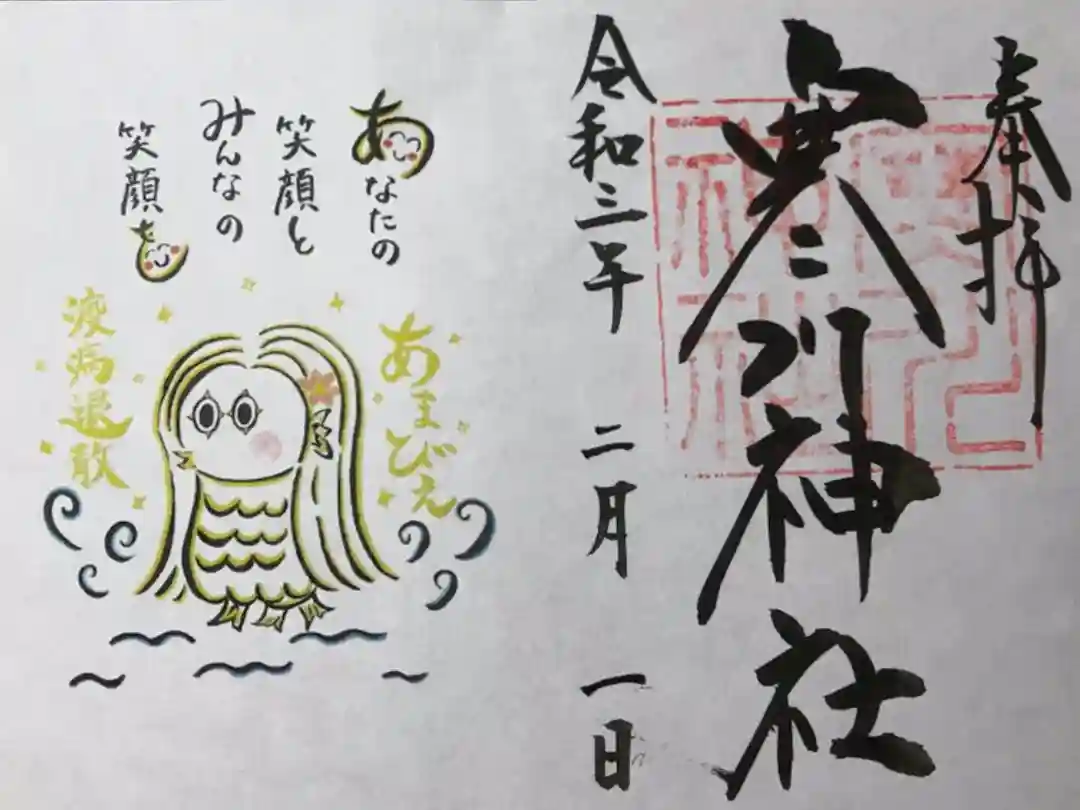 奉拝
寒川神社
令和三年 二月 一日
あなたの
笑顔と
みんなの
笑顔を
あまびえ
疫病退散